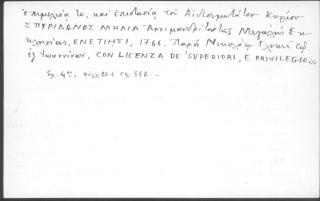 ἐπιμελείᾳ τε, καὶ ἐπιστασίᾳ τοῦ Αἰδεσιμωτάτου Κυρίου
ΣΠΥΡΙΔΩΝΟΣ ΜΗΛΙΑ Ἀρχιμανδρίτου τῆς Μεγάλης Ἐκ-
κλησίας, ΕΝΕΤΙΗΣΙ, 1761. Παρὰ Νικολάῳ Γλυκεῖ τῷ
ἐξ Ἰωαννίνων, CON LICENZA DE' SUPERIORI, E PRIVILEGIO »
Σχ. 4ον, φύλλ. + σελ. 552. –